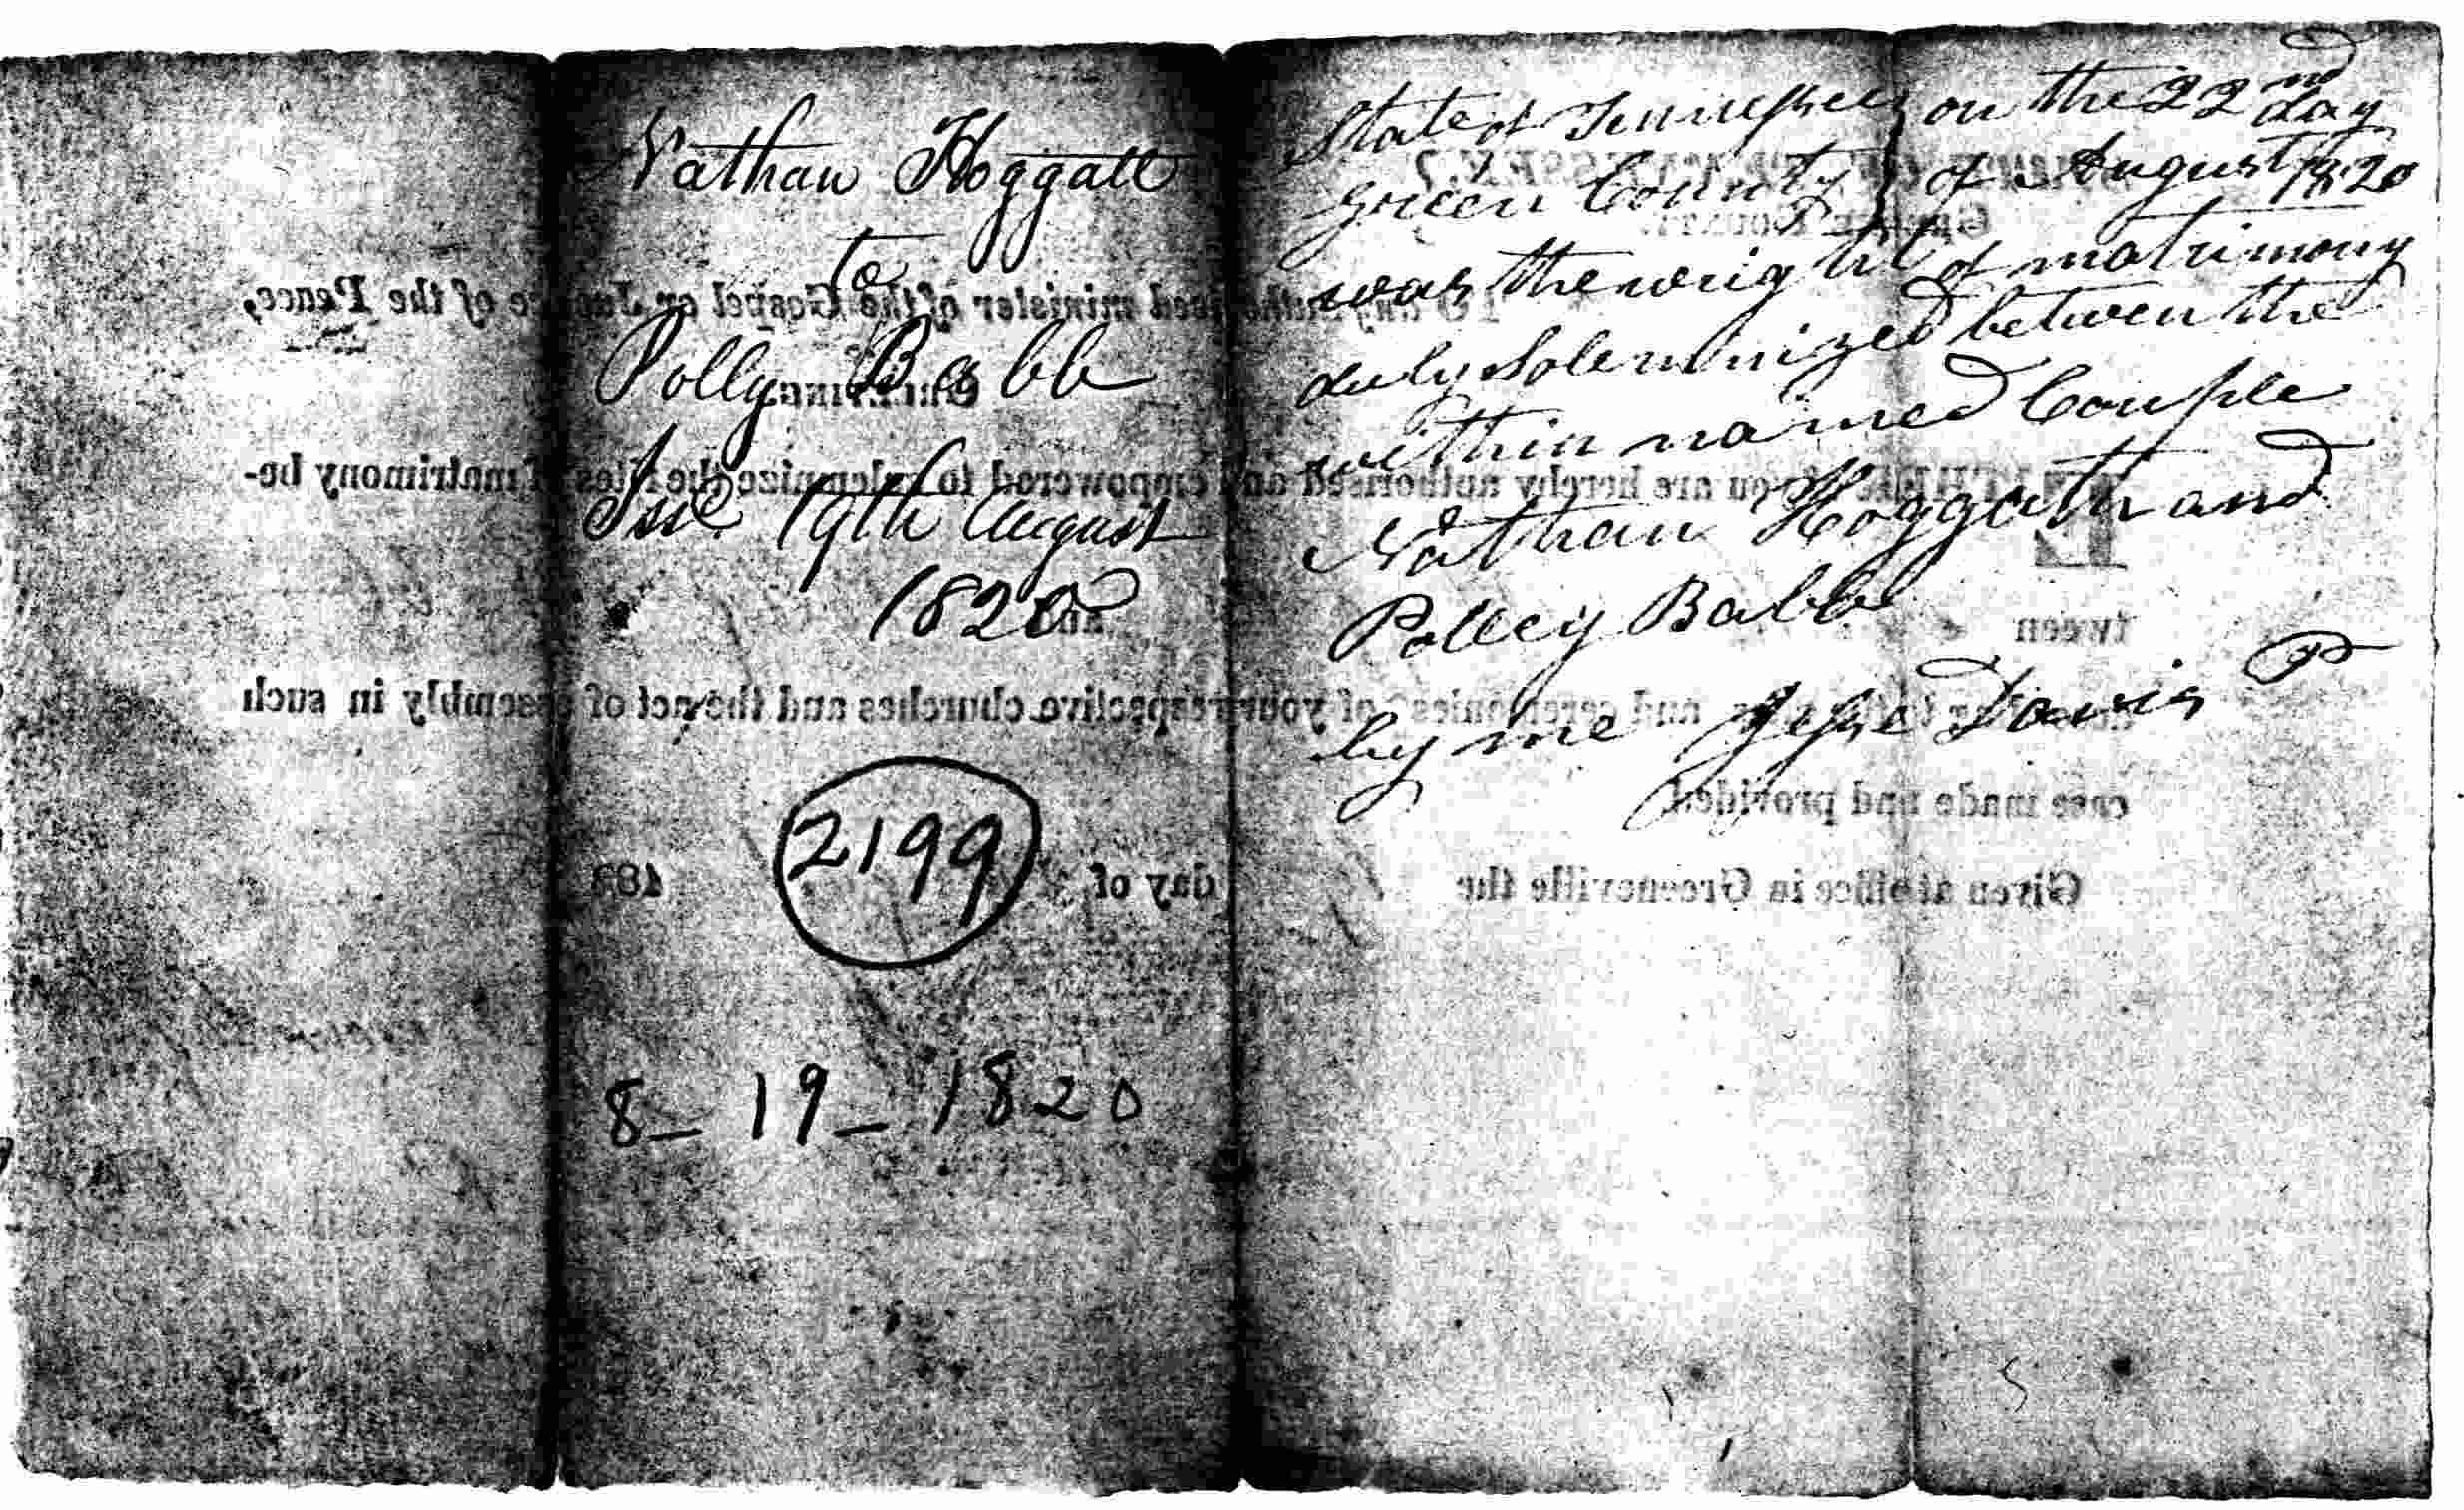 Nathan Hoggatt
to
Polly Babb
Issd 19th August
1820
2199
8_ 19_ 1820
State of Tennessee } on the 22nd day
Green County } of August 1820
was the wright of matrimony
duly Solemnized between the
within named Couple
Nathan Hoggath and
Polley Babb
by me Jesse Davis
To any authorised minister of the Gospel or Justice of the Peace,
you are hereby authorised and empowered to solemnize the rites of matrimony be-
tween
and
and ceremonies of your respective churches and the act of assembly in such
case made and provided
Given at office in Greeneville the day of 182